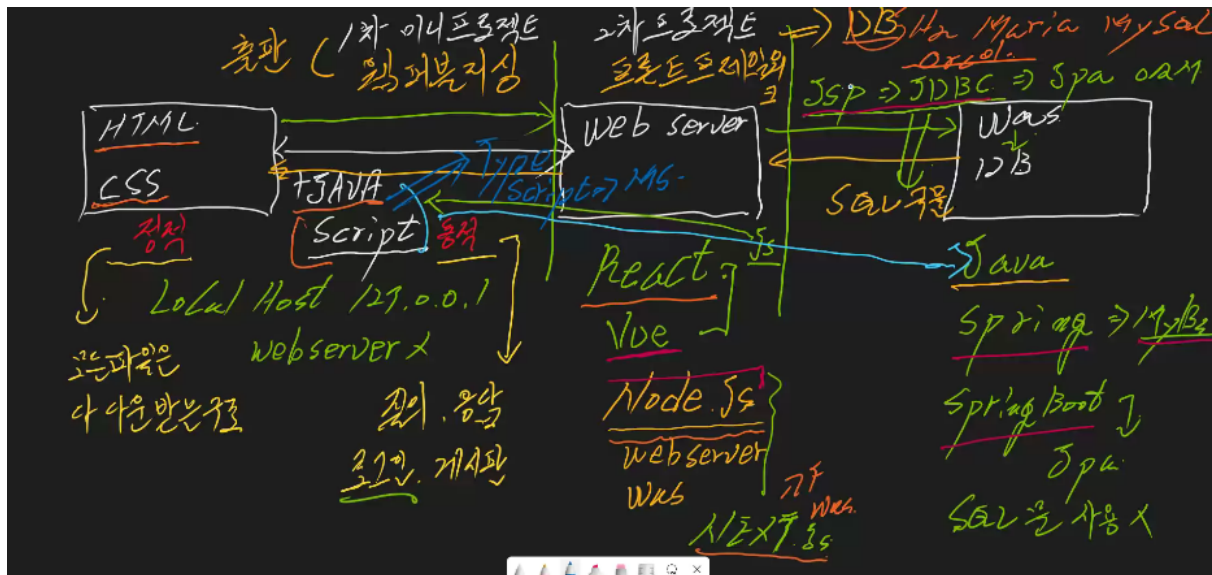 출판 ( 1차 미니프로젝트
웹퍼블리싱
2차 프로젝트
프론트프레임워크
=> DB H2 Maria MySQL
JSP => JDBC => Jpa ORM
HTML
CSS
+JAVA
Script
Type
Script => MS
web server
Was
DB
SQL 구문
정적
동적
Local Host 127.0.0.1
webserver x
모든파일은
다 다운받는구조
질의, 응답
로그인, 게시판
Js
React
Vue
Node.js
webserver
was
NEXT.js
was
Java
Spring =>
Spring Boot
Jpa
SQL문 사용 X